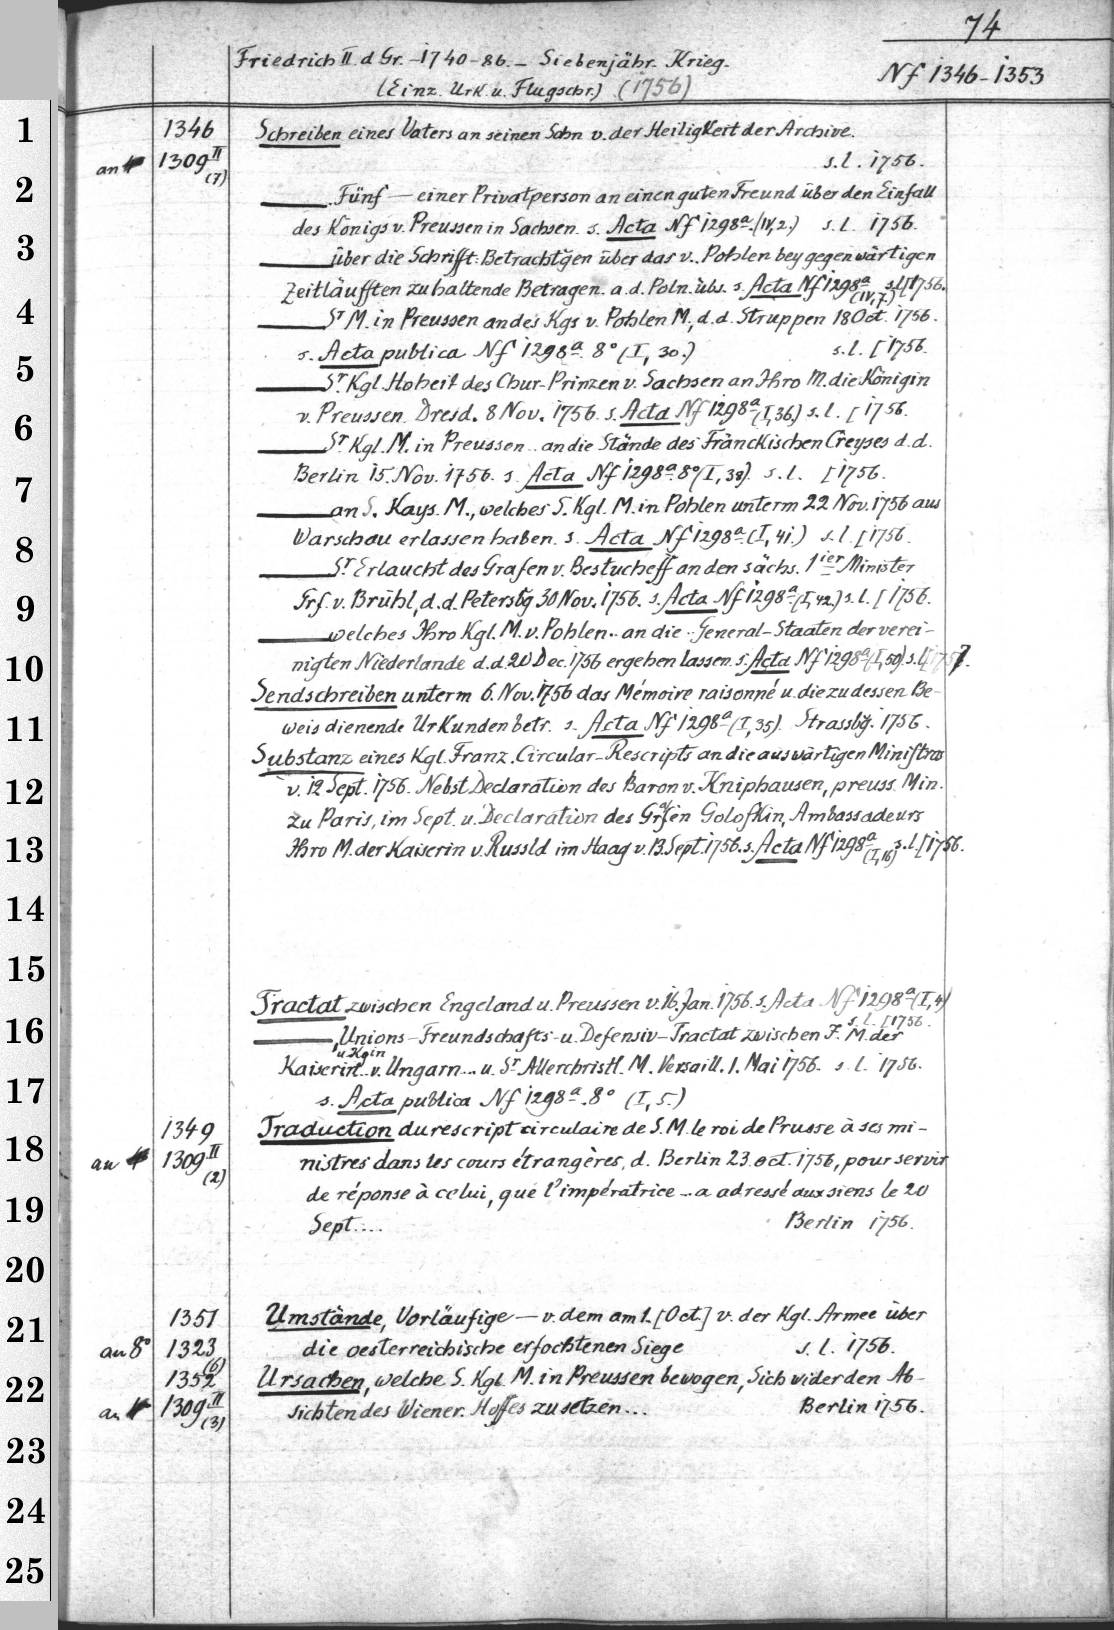 74
Friedrich II. d. Gr. - 1740-86. - Siebenjähr. Krieg.
(Einz. Urk. u. Flugschr.) (1756)
Nf 1346-1353
1
1346 Schreiben eines Vaters an seinen Sohn v. der Heiligkeit der Archive.
an 1309 II (7) s.l. 1756.
2
____ Fünf — einer Privatperson an einen guten Freund über den Einfall
des Königs v. Preussen in Sachsen. s. Acta Nf 1298a. (IV,2.) s.l. 1756.
3
____ über die Schrifft: Betrachtg̃en über das v.. Pohlen bey gegenwärtigen
Zeitläufften zu haltende Betragen. a. d. Poln. übs. s. Acta Nf 1298a (IV,7.) s.l. [1756.
4
____ Sr M. in Preussen an des Kgs v. Pohlen M., d.d. Struppen 18 Oct. 1756.
s. Acta publica Nf 1298a. 8° (I, 30.) s.l. [1756.
5
____ Sr. Kgl. Hoheit des Chur-Prinzen v. Sachsen an Ihro M. die Königin
v. Preussen. Dresd. 8 Nov. 1756. s. Acta Nf 1298a (I,36.) s.l. [1756.
6
____ Sr Kgl. M. in Preussen.. an die Stände des Fränckischen Creyses d.d.
Berlin 15. Nov. 1756. s. Acta Nf 1298a. 8° (I, 38). s.l. [1756.
7
____ an S. Kays. M., welches S. Kgl. M. in Pohlen unterm 22 Nov. 1756 aus
Warschau erlassen haben. s. Acta Nf 1298a. (I, 41.) s.l. [1756.
8
____ Sr. Erlaucht des Grafen v. Bestucheff an den sächs. 1ier Minister
Grf. v. Brühl, d.d. Petersbg 30 Nov. 1756. s. Acta Nf 1298a (I,42.) s.l. [1756.
9
____ welches Ihro Kgl. M. v. Pohlen.. an die.. General-Staaten der verei-
10
nigten Niederlande d.d. 20 Dec. 1756 ergehen lassen. s. Acta Nf 1298a (I,50) s.l. [1757.
Sendschreiben unterm 6. Nov. 1756 das Mémoire raisonné u. die zu dessen Be-
11
weis dienende Urkunden betr. s. Acta Nf 1298a (I,35). Strassbg. 1756.
Substanz eines Kgl. Franz. Circular-Rescripts an die auswärtigen Ministros
12
v. 12 Sept. 1756. Nebst Declaration des Baron v. Kniphausen, preuss. Min.
zu Paris, im Sept. u. Declaration des Grafen Golofkin, Ambassadeurs
13
Ihro M. der Kaiserin v. Russld im Haag v. 13. Sept. 1756. s. Acta Nf 1298a (I,16) s.l. [1756.
14
15
Tractat zwischen Engeland u. Preussen v. 16. Jan. 1756. s. Acta Nf 1298a (I,4)
s.l. [1756.
16
____, Unions-Freundschafts- u. Defensiv-Tractat zwischen I. M. der
u. Kgin
17
Kaiserin v. Ungarn... u. Sr. Allerchristl. M. Versaill. 1. Mai 1756. s.l. 1756.
s. Acta publica Nf 1298a. 8° (I, 5.)
18
1349 Traduction du rescript circulaire de S. M. le roi de Prusse à ses mi-
an 1309 II (2) nistres dans les cours étrangères, d. Berlin 23 oct. 1756, pour servir
19
de réponse à celui, que l'impératrice... a adressé aux siens le 20
Sept.... Berlin 1756.
20
21
1351 Umstände, Vorläufige — v. dem am 1. [Oct.] v. der Kgl. Armee über
an 8° 1323 (6) die oesterreichische erfochtenen Siege s.l. 1756.
22
1352 Ursachen, welche S. Kgl. M. in Preussen bewogen, Sich wider den Ab-
an 1309 II (3) sichten des Wiener. Hoffes zu setzen... Berlin 1756.
23
24
25